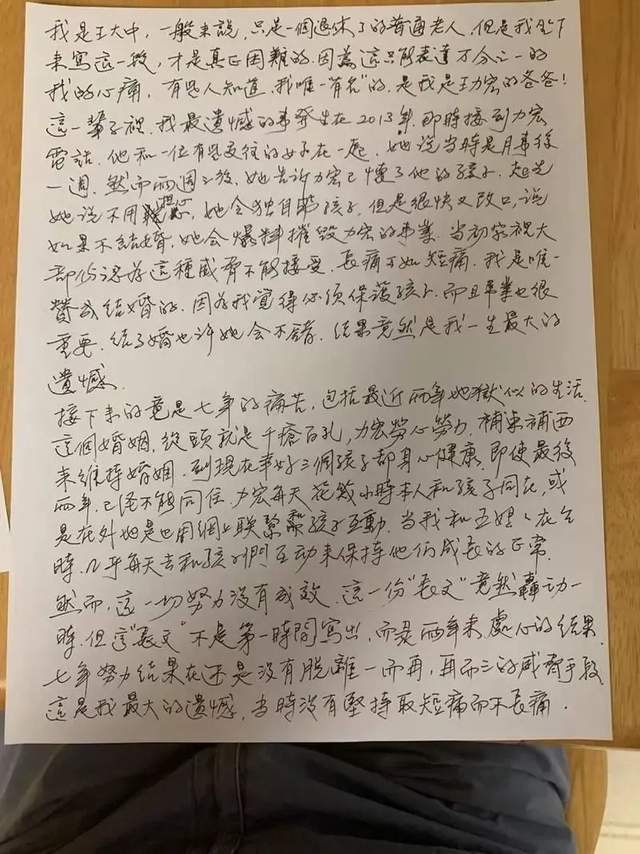 我是王大中，一般来說，只是一個退休了的普通老人，但是我坐下
来寫這一段，才是真正困難的．因為這只能表達万分之一的
我的心痛．有些人知道，我唯一"有名"的，是我是王力宏的爸爸！
這一輩子裡，我最遺憾的事発生在2013年，那時接到力宏
電話．他和一位有些交往的女子在一起．她說当時是月事後
一週．然而兩週之後，她告訴力宏已懷了他的孩子．起先
她說不用担心，她会独自
孩子．但是很快又改口，說
如果不結婚，她会爆料摧毀力宏的事業．当初家裡大
部份認為這種威脅不能接受．長痛不如短痛．我是唯一
贊成結婚的．因為我覺得必須保護孩子．而且事業也很
重要．結了婚也許她会不錯．結果竟然是我一生最大的
遺憾．
接下来的竟是七年的痛苦，包括最近兩年地獄似的生活．
這個婚姻，從頭就是千瘡百孔，力宏勞心勞力，補東補西
来維持婚姻．到現在幸好三個孩子都身心健康．即使最後
兩年，已经不能同住．力宏每天花幾小時本人和孩子同在，或
是在外地也用網上联繫
孩子互動．当我和王媽媽在台
時．几乎每天去和孩子們互动来保持他们成長的正常．
然而，這一切努力没有成效．這一份"長文"竟然轟动一
時．但這"長文"不是第一時間寫出，而是兩年来處心的結果．
七年努力結果在还是没有脱離一而再，再而三的威脅手段
這是我最大的遺憾，当時没有堅持取短痛而不長痛．